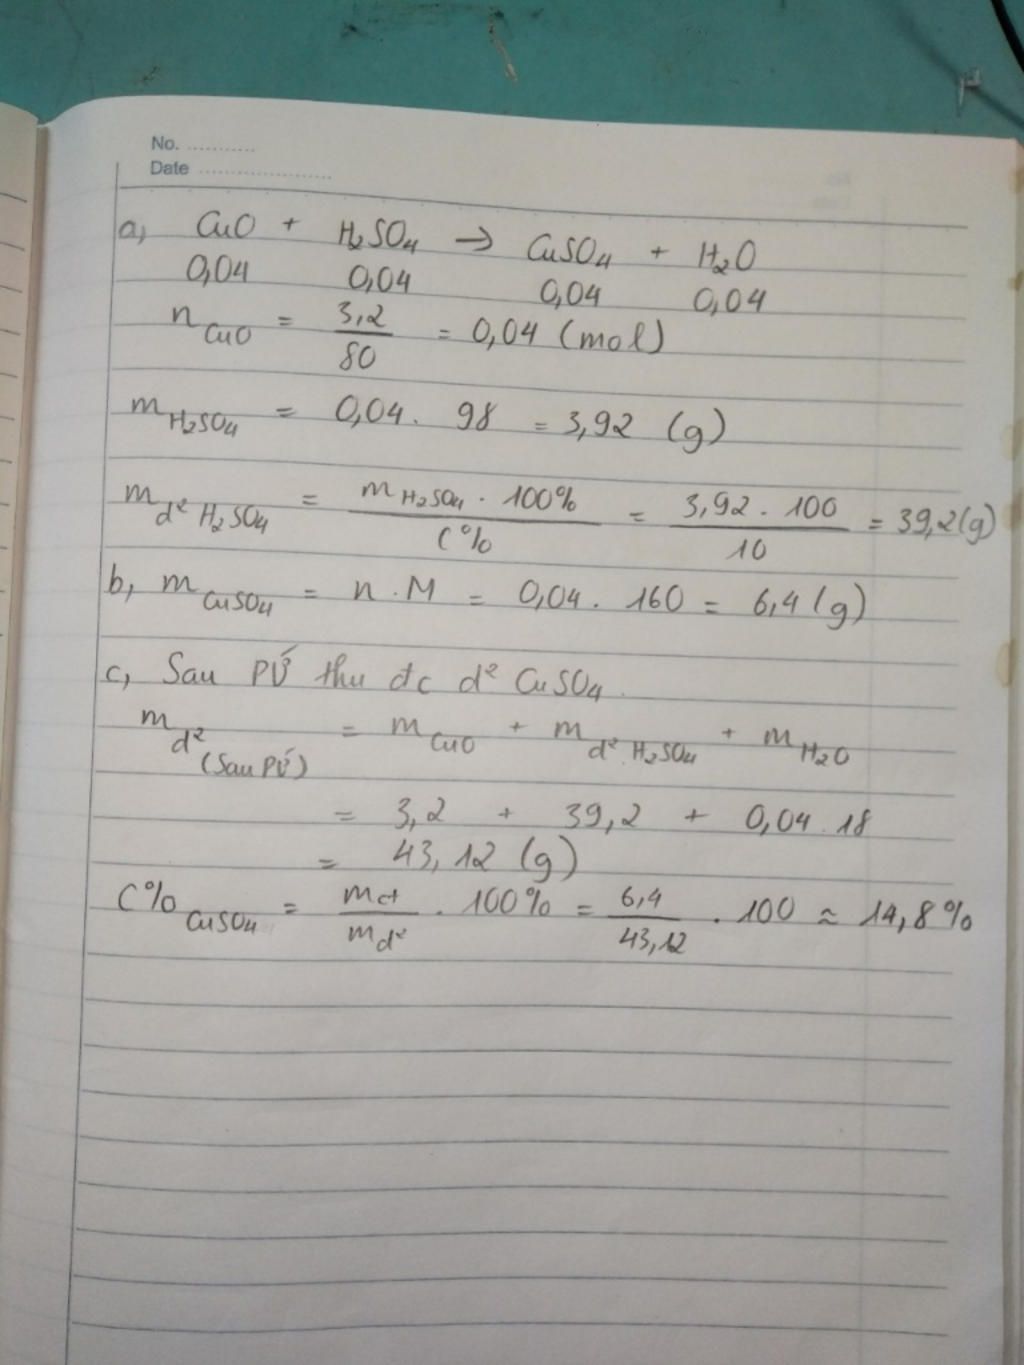 No. ...........
Date ......................
a, CuO + H₂SO₄ → CuSO₄ + H₂O
0,04 0,04 0,04 0,04
n CuO = 3,2 / 80 = 0,04 (mol)
m H₂SO₄ = 0,04 . 98 = 3,92 (g)
m d² H₂SO₄ = m H₂SO₄ . 100% / C% = 3,92 . 100 / 10 = 39,2 (g)
b, m CuSO₄ = n . M = 0,04 . 160 = 6,4 (g)
c, Sau PỨ thu đc d² CuSO₄.
m d² (Sau PỨ) = m CuO + m d² H₂SO₄ + m H₂O
= 3,2 + 39,2 + 0,04 . 18
= 43,12 (g)
C% CuSO₄ = mct / md² . 100% = 6,4 / 43,12 . 100 ≈ 14,8%